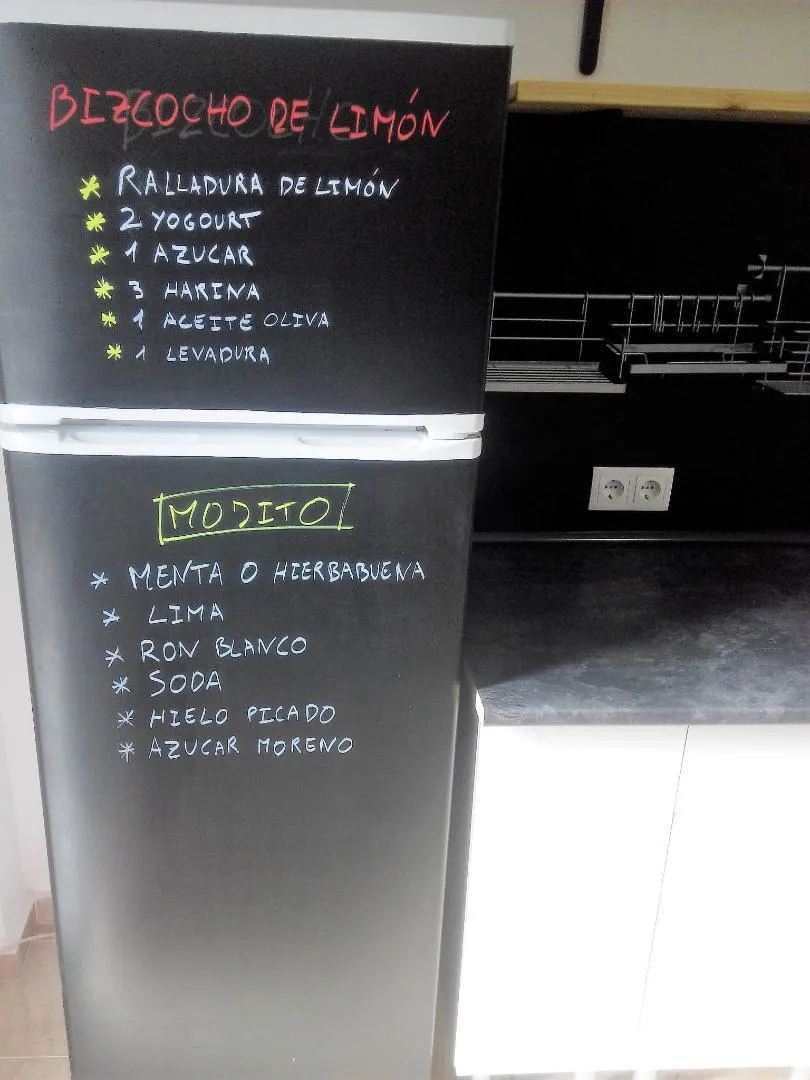 BIZCOCHO DE LIMÓN
* RALLADURA DE LIMÓN
* 2 YOGOURT
* 1 AZUCAR
* 3 HARINA
* 1 ACEITE OLIVA
* 1 LEVADURA
MOJITO
* MENTA O HIERBABUENA
* LIMA
* RON BLANCO
* SODA
* HIELO PICADO
* AZUCAR MORENO